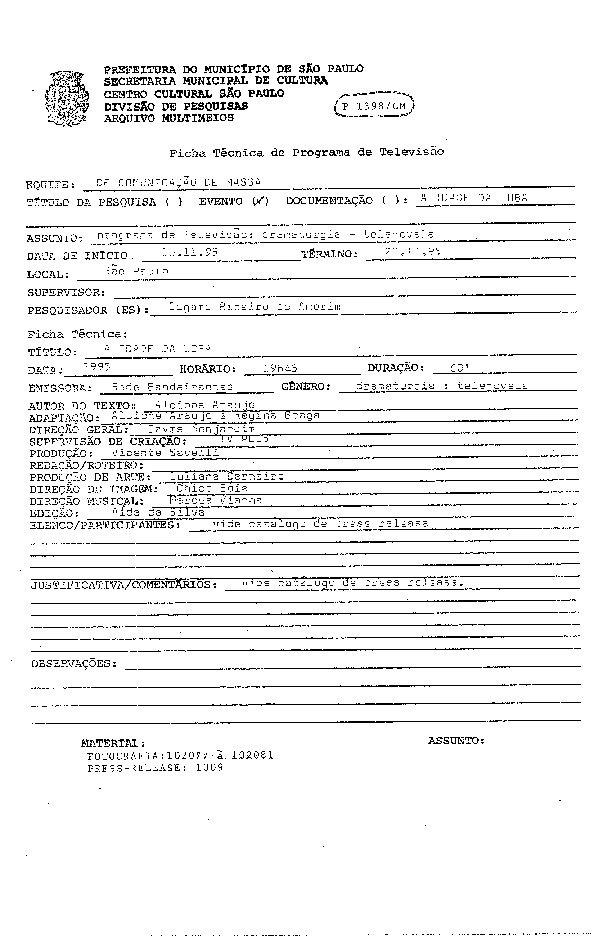 PREFEITURA DO MUNICÍPIO DE SÃO PAULO
SECRETARIA MUNICIPAL DE CULTURA
CENTRO CULTURAL SÃO PAULO
DIVISÃO DE PESQUISAS
ARQUIVO MULTIMEIOS
P 1398/CM
Ficha Técnica de Programa de Televisão
EQUIPE: DE COMUNICAÇÃO DE MASSA
TÍTULO DA PESQUISA ( ) EVENTO (✓) DOCUMENTAÇÃO ( ): A IDADE DA LOBA
ASSUNTO: programa de televisão: dramaturgia - telenovela
DATA DE INÍCIO: .11.95 TÉRMINO: .11.95
LOCAL: São Paulo
SUPERVISOR:
PESQUISADOR (ES): Edgard Ribeiro de Amorim
Ficha Técnica:
TÍTULO: A IDADE DA LOBA
DATA: 1995 HORÁRIO: 19h45 DURAÇÃO: 60'
EMISSORA: Rede Bandeirantes GÊNERO: dramaturgia : telenovela
AUTOR DO TEXTO: Alcione Araujo
ADAPTAÇÃO: Alcione Araujo e Regina Braga
DIREÇÃO GERAL: Jayme Monjardim
SUPERVISÃO DE CRIAÇÃO: TV PLUS
PRODUÇÃO: Vicente Savelli
REDAÇÃO/ROTEIRO:
PRODUÇÃO DE ARTE: Juliana
DIREÇÃO DE IMAGEM:
DIREÇÃO MUSICAL: Marcus Vianna
EDIÇÃO: da Silva
ELENCO/PARTICIPANTES: vide catalogr de press release
JUSTIFICATIVA/COMENTÁRIOS: vide catalogr de press release.
OBSERVAÇÕES:
MATERIAL: ASSUNTO:
FOTOGRAFIA: à 102081
PRESS-RELEASE: 1009